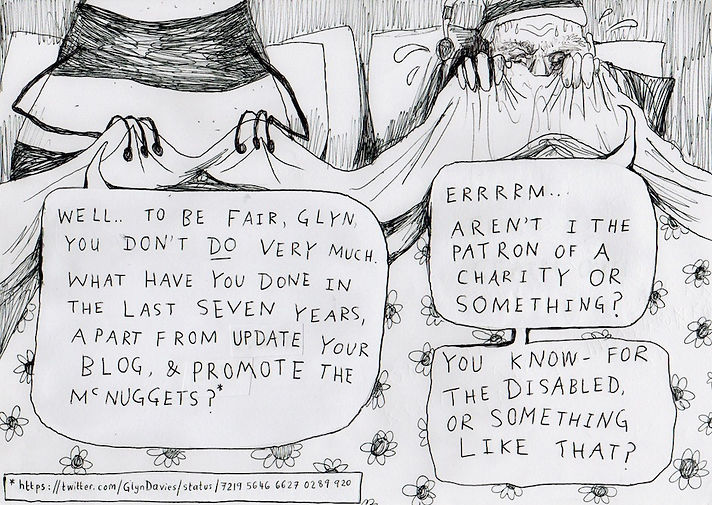 WELL.. TO BE FAIR, GLYN,
YOU DON'T DO VERY MUCH.
WHAT HAVE YOU DONE IN
THE LAST SEVEN YEARS,
APART FROM UPDATE YOUR
BLOG, & PROMOTE THE
McNUGGETS?*
ERRRRM...
AREN'T I THE
PATRON OF A
CHARITY OR
SOMETHING?
YOU KNOW - FOR
THE DISABLED,
OR SOMETHING
LIKE THAT?
* https://twitter.com/GlynDavies/status/7219 5646 6627 0289 920